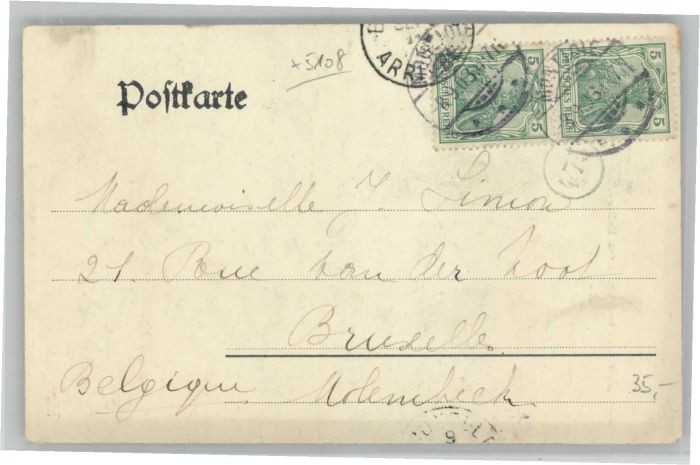 +5108
ARR
Postkarte
5 DEUTSCHES REICH 5
5 DEUTSCHES REICH 5
47
Mademoiselle J. Simon
21 Rue van der
Bruxelles
Belgique Molembeck
35,-
9